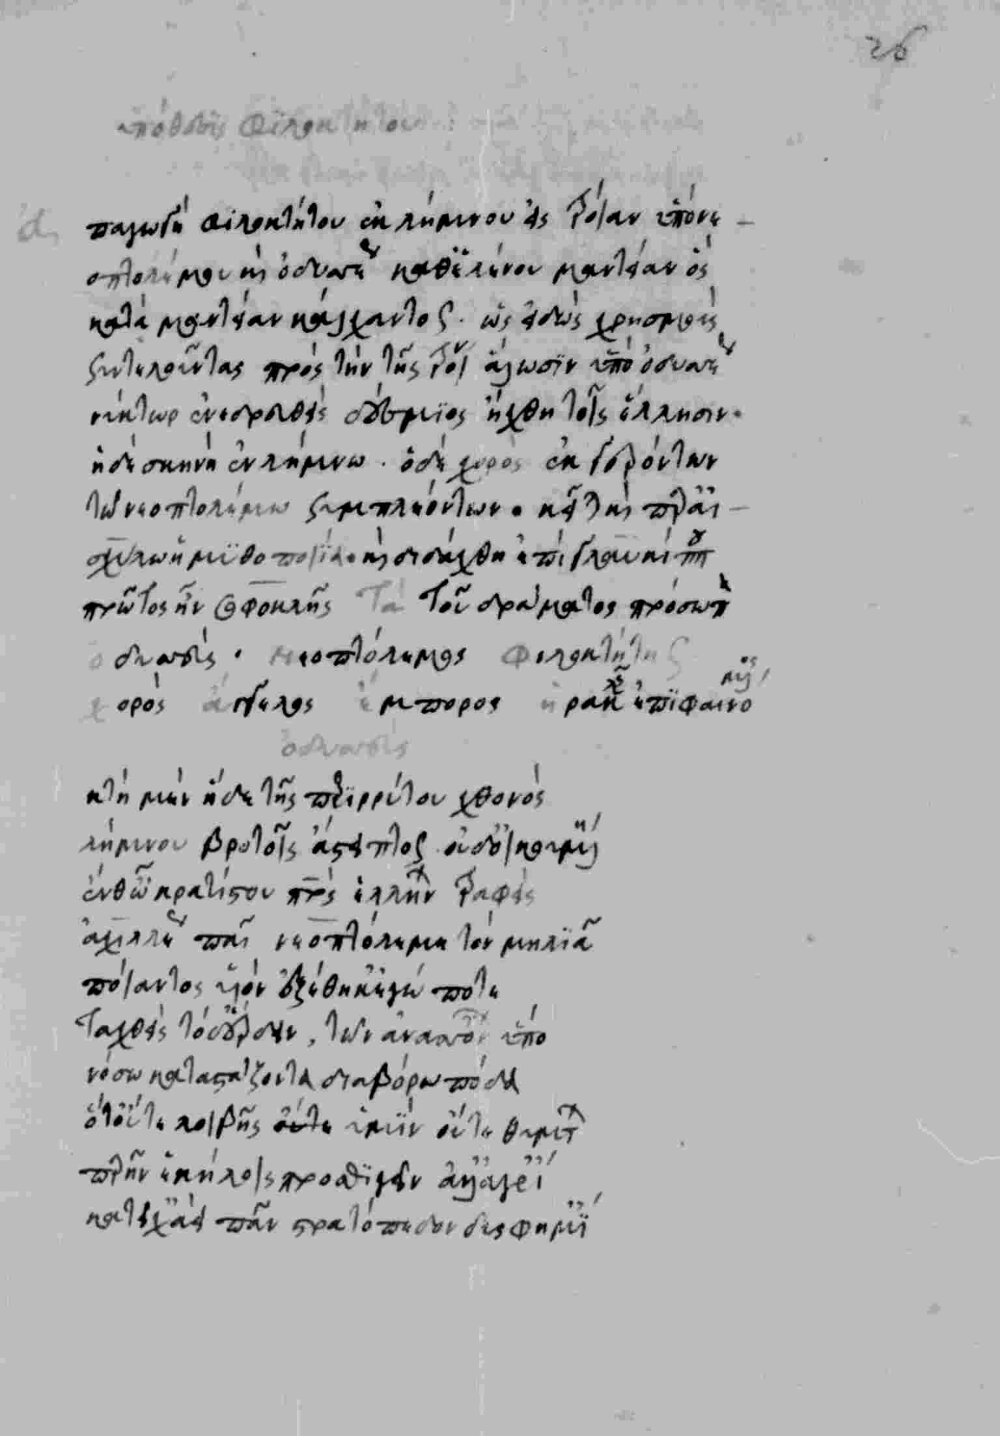 ὑπόθεσις Φιλοκτήτου
ἀ
παγωγὴ Φιλοκτήτου ἐκ λήμνου εἰς Τροίαν ὑπὸ νε
οπτολέμου καὶ ὀδυσσέως καθ' ἑλένου μαντείαν ὃς
κατὰ μαντείαν κάλχαντος. ὡς εἰδὼς χρησμοὺς
συντελοῦντας πρὸς τὴν τῆς Τροίας ἅλωσιν ὑπὸ ὀδυσσέως
νύκτωρ ἐνεδρευθεὶς δέσμιος ἤχθη τοῖς ἕλλησιν.
ἡ δὲ σκηνὴ ἐν λήμνω. ὁ δὲ χορὸς ἐκ γερόντων
τῶ νεοπτολέμω συμπλεόντων. κεῖται καὶ παρ' αἰ
σχύλω ἡ μυθοποιΐα. καὶ ἐδιδάχθη ἐπὶ γλαυκίππου
πρῶτος ἦν Σοφοκλῆς Τὰ τοῦ δράματος πρόσωπα
ὀδυσσεύς. νεοπτόλεμος Φιλοκτήτης
χορός ἄγγελος ἔμπορος ἡρακλῆς ἐπιφαινόμενος
ὀδυσσεύς
ἀκτὴ μὲν ἥδε τῆς περιρρύτου χθονὸς
λήμνου βροτοῖς ἄστειπτος οὐδ' οἰκουμένη
ἔνθ' ὦ κρατίστου πατρὸς ἑλλήνων Τραφεὶς
ἀχιλλέως παῖ νεοπτόλεμε τὸν μηλιᾶ
ποίαντος υἱὸν ἐξέθηκ' ἐγώ ποτε
Ταχθεὶς τόδ' ἔρδειν, τῶν ἀνασσόντων ὕπο
νόσω καταστάζοντα διαβόρω πόδα
ὅτ' οὔτε λοιβῆς οὔτε ἡμῖν οὔτε θυμάτων
παρῆν ἑκήλοις προσθιγεῖν ἀλλ' ἀγρίαις
κατεῖχ' ἀεὶ πᾶν στρατόπεδον δυσφημίαις